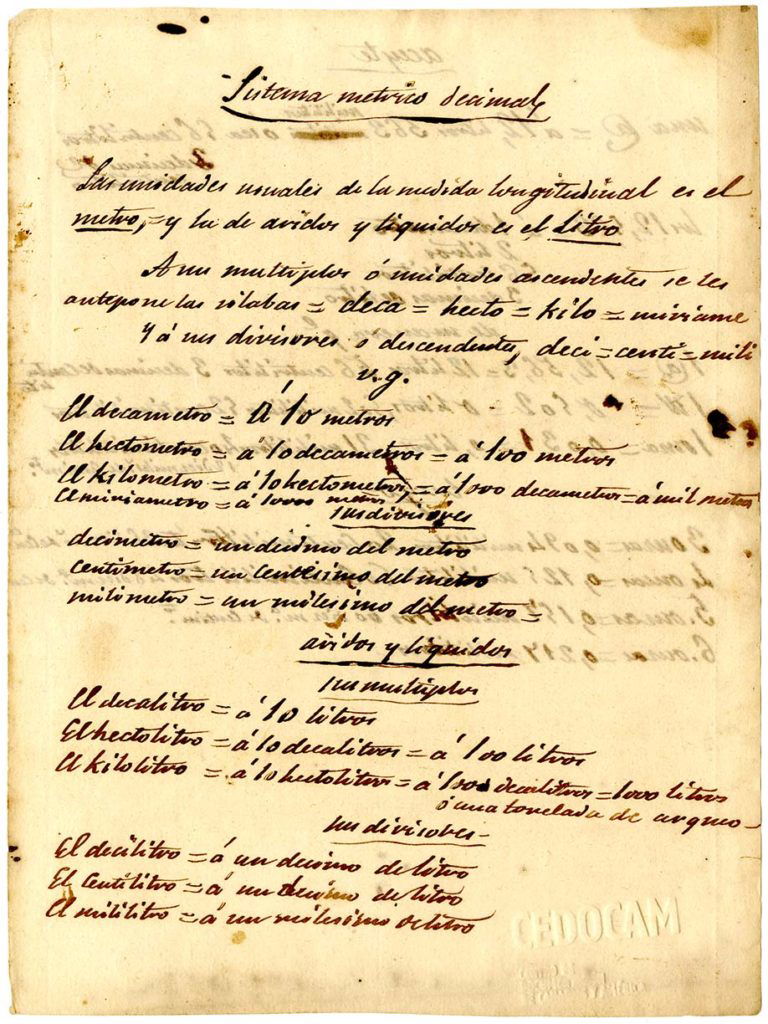 Sistema metrico decimal
Las unidades usuales de la medida longitudinal es el
metro, = y la de aridos y liquidos es el Litro
A sus multiplos ó unidades ascendentes se les
antepone las silabas = deca = hecto = kilo = miriame
Y á sus divisores o descendentes, deci = centi = mili
v.g.
El decametro = á 10 metros
El hectometro = á 10 decametros = á 100 metros
El kilometro = á 10 hectometros = á 100 decametros = á mil metros
El miriametro = á 10000 metros
sus divisores
decimetro = un decimo del metro
centimetro = un centesimo del metro
milimetro = un milesimo del metro =
aridos y liquidos
sus multiplos
El decalitro = á 10 litros
El hectolitro = á 10 decalitros = á 100 litros
El kilolitro = á 10 hectolitros = á 100 decalitros = 1000 litros
ó una tonelada de arqueo -
sus divisores -
El decilitro = á un decimo de litro
El Centilitro = á un decimo de litro
El mililitro = á un milesimo de litro
CEDOCAM